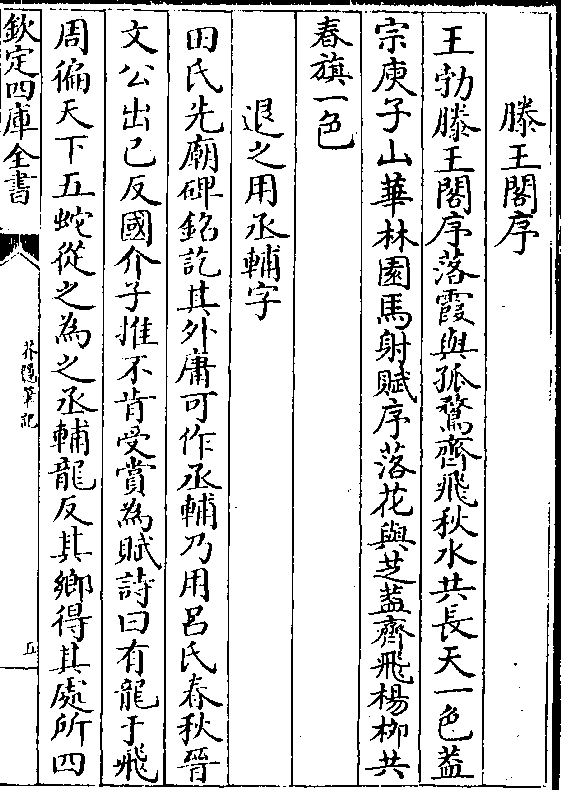 滕王閣序
王勃滕王閣序落霞與孤鶩齊飛秋水共長天一色葢
宗庾子山華林園馬射賦序落花與芝葢齊飛楊柳共
春旗一色
退之用丞輔字
田氏先廟碑銘訖其外庸可作丞輔乃用吕氏春秋晉
文公出亡反國介子推不肯受賞為賦詩曰有龍于飛
周徧天下五蛇從之為之丞輔龍反其鄉得其處所四
欽定四庫全書
芥隱筆記
五